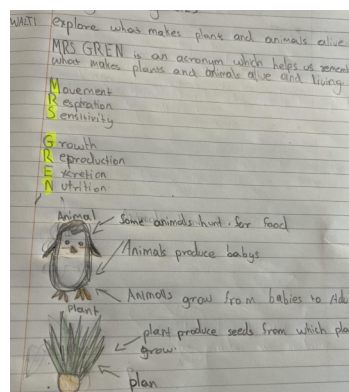 WALT: explore what makes plant and animals alive.
MRS GREN is an acronym which helps us
what makes plants and animals alive and living
Movement
Respration
Sensitivity
Growth
Reproduction
Excretion
Nutrition
Animal
Some animals hunt for food
Animals produce babys
Animals grow from babies to
Plant
plant produce seeds from which
grow.
plan